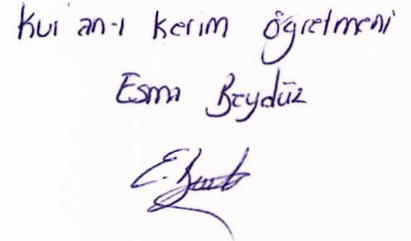 Kur'an-ı Kerim öğretmeni
Esma Beydüz